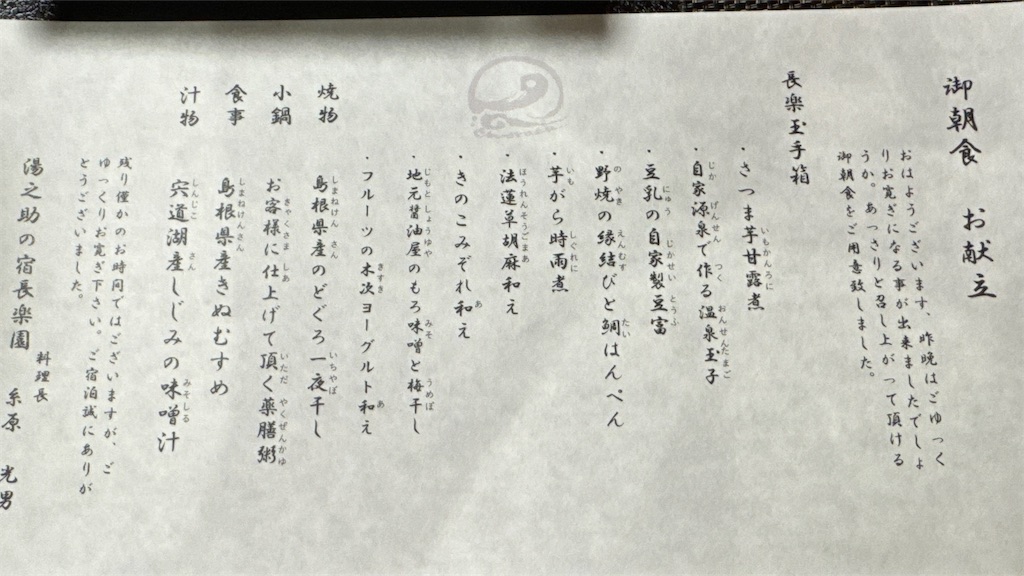 御朝食 お献立
おはようございます、昨晩はごゆっく
りお寛ぎになる事が出来ましたでしょ
うか。あっさりと召し上がって頂ける
御朝食をご用意致しました。
長楽玉手箱
・さつま芋甘露煮
・自家源泉で作る温泉玉子
・豆乳の自家製豆富
・野焼の縁結びと鯛はんぺん
・芋がら時雨煮
・法蓮草胡麻和え
・きのこみぞれ和え
・地元醤油屋のもろ味噌と梅干し
・フルーツの木次ヨーグルト和え
焼物 島根県産のどぐろ一夜干し
小鍋 お客様に仕上げて頂く薬膳粥
食事 島根県産きぬむすめ
汁物 宍道湖産しじみの味噌汁
残り僅かのお時間ではございますが、ご
ゆっくりお寛ぎ下さい。ご宿泊誠にありが
とうございました。
湯之助の宿長楽園
料理長 糸原 光男